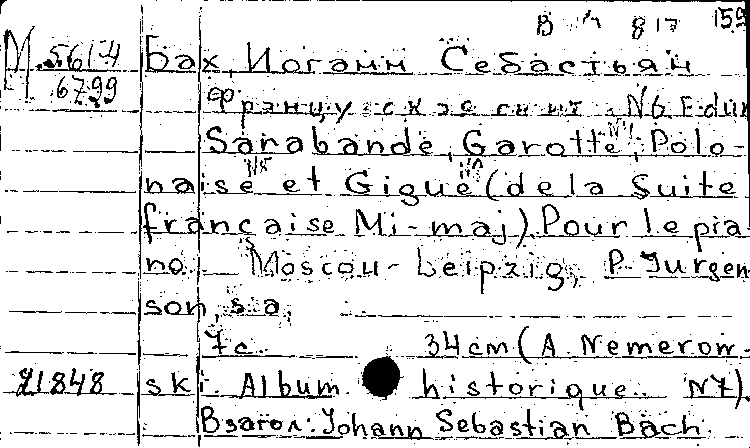 B 817 159
М.5614 Бах, Иоганн Себастьян
6799 Французская сюита N6 E-dur
Sarabande, Garotte, Polo-
naise et Gigue (de la Suite
française Mi-maj). Pour le pia-
no. Moscou-Leipzig, P. Jurgen
son, s.a.
7 c. 34 cm (A. Nemerow-
21848 ski. Album historique. N7).
В загол.: Johann Sebastian Bach.